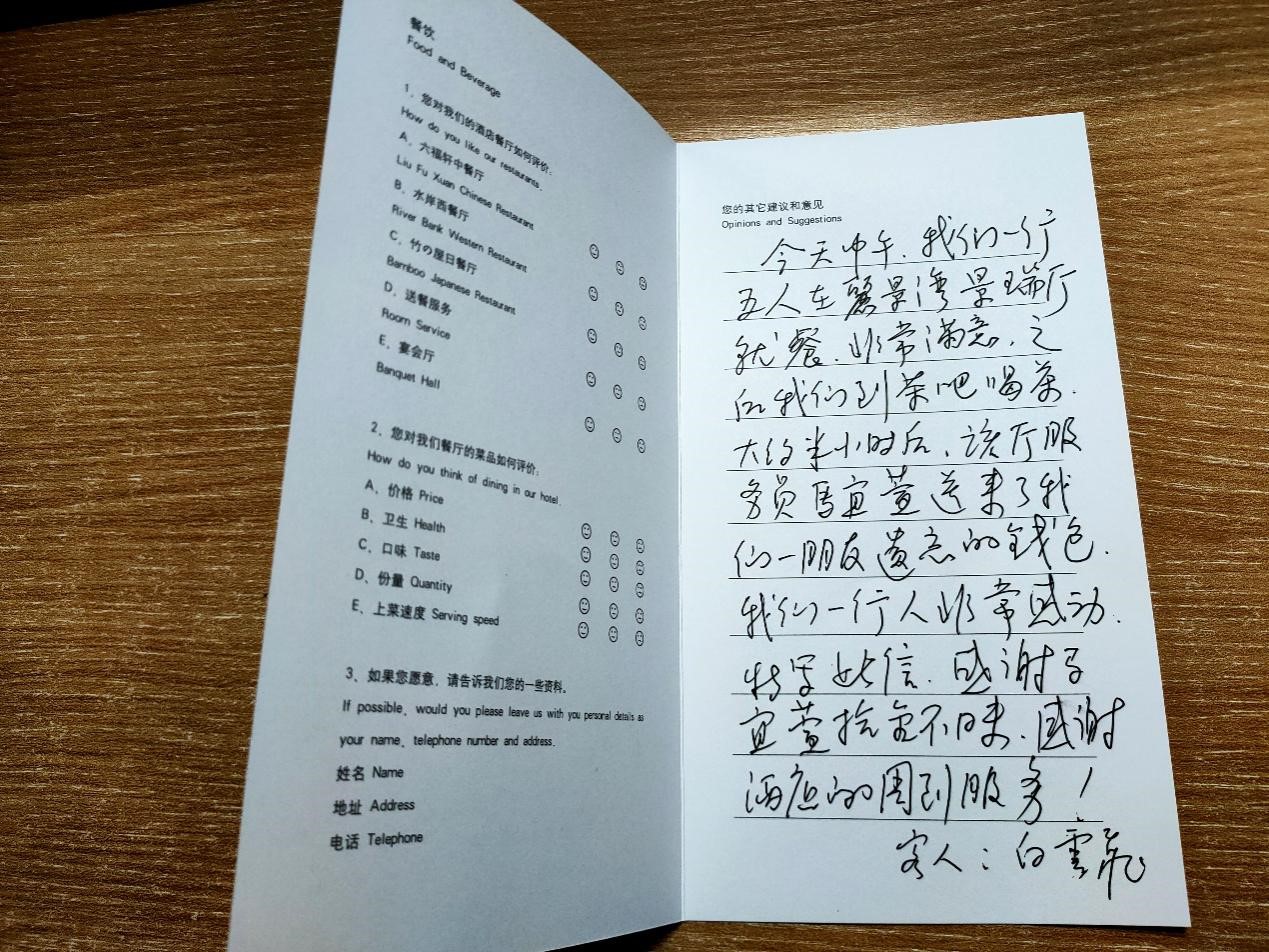 餐饮
Food and Beverage
1、您对我们的酒店餐厅如何评价:
How do you like our restaurants.
A、六福轩中餐厅
Liu Fu Xuan Chinese Restaurant
B、水岸西餐厅
River Bank Western Restaurant
C、竹の屋日餐厅
Bamboo Japanese Restaurant
D、送餐服务
Room Service
E、宴会厅
Banquet Hall
2、您对我们餐厅的菜品如何评价:
How do you think of dining in our hotel.
A、价格 Price
B、卫生 Health
C、口味 Taste
D、份量 Quantity
E、上菜速度 Serving speed
3、如果您愿意，请告诉我们您的一些资料。
If possible, would you please leave us with you personal details as
your name, telephone number and address.
姓名 Name
地址 Address
电话 Telephone
您的其它建议和意见
Opinions and Suggestions
今天中午.我们一行
五人在麗景湾景瑞厅
就餐.非常满意.之
后我们到茶吧喝茶.
大约半小时后.该厅服
务员馬宜萱送来了我
们一朋友遗忘的钱包.
我们一行人非常感动.
特写此信.感谢马
宜萱拾金不昧.感谢
酒店的周到服务!
客人:白雲飛